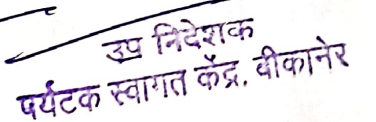 उप निदेशक
पर्यटक स्वागत केंद्र, बीकानेर